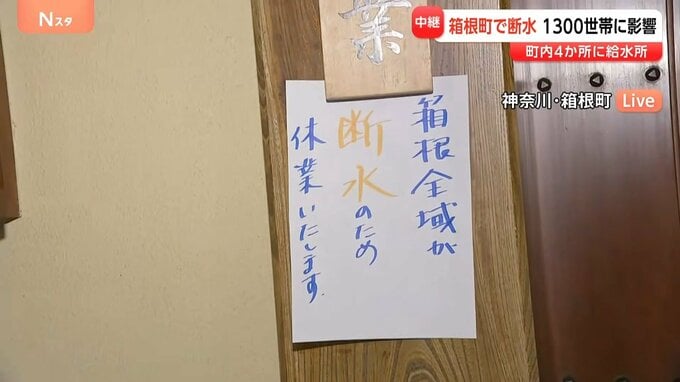 Nスタ
中継
箱根町で断水 1300世帯に影響
町内4か所に給水所
神奈川・箱根町
Live
業
箱根全域が
断水のため
休業いたします.